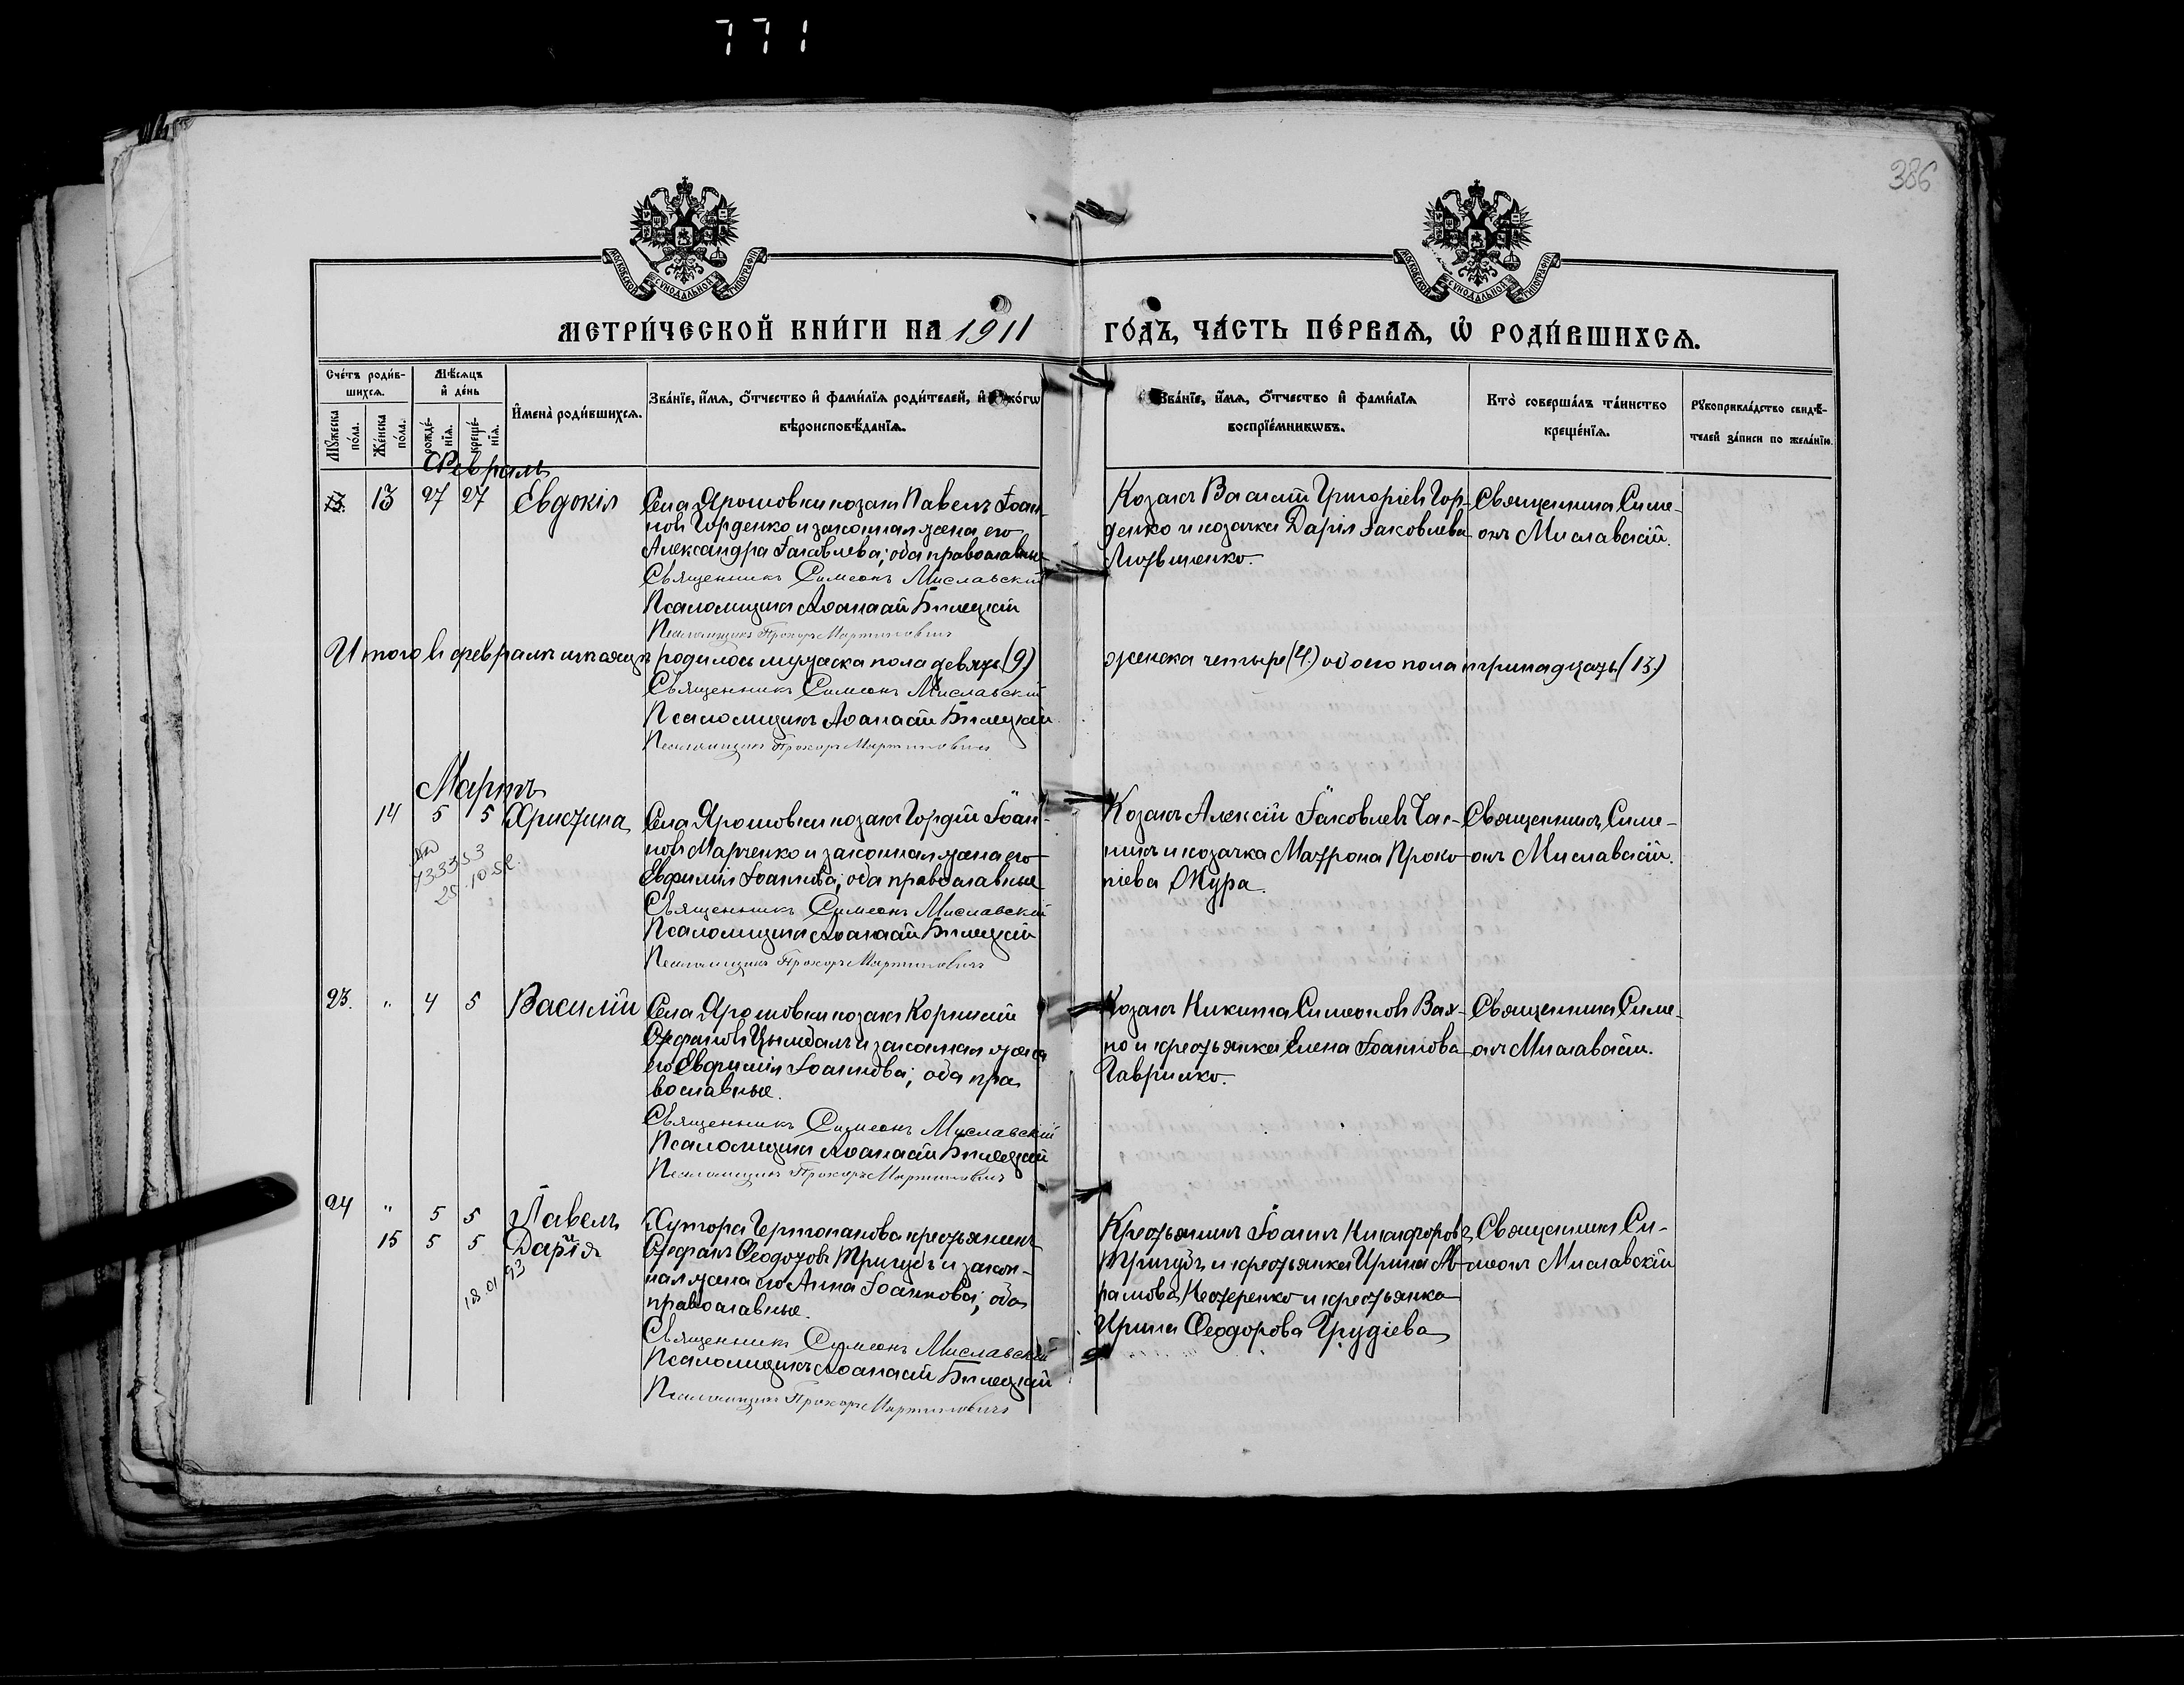 771
386
МОСКОВСКОЙ СѴНОДАЛЬНОЙ ТИПОГРАФІИ
МОСКОВСКОЙ СѴНОДАЛЬНОЙ ТИПОГРАФІИ
МЕТРИ́ЧЕСКОЙ КНИ́ГИ НА 1911 ГО́ДЪ, ЧА́СТЬ ПЕ́РВАѦ, Ѡ҆ РОДИ́ВШИХСѦ.
Сче́тъ роди́в-
шихсѧ.
Мѣ́сѧцъ
и҆ де́нь
Мꙋ́жеска
по́ла.
Же́нска
по́ла.
рожде́-
нїѧ.
креще́-
нїѧ.
И҆мена̀ роди́вшихсѧ.
Зва́нїе, и҆́мѧ, ѻ҆́тчество и҆ фами́лїѧ роди́телей, и҆ како́гѡ
вѣроисповѣ́данїѧ.
Зва́нїе, и҆́мѧ, ѻ҆́тчество и҆ фами́лїѧ
воспрїе́мникѡвъ.
Кто̀ соверша́лъ та́инство
креще́нїѧ.
Рꙋкоприкла́дство свидѣ́-
телей за́писи по жела́нїю.
Февраль
13 27 27 Евдокія
Села Ярошовки козакъ Павелъ Іоан-
новъ Горденко и законная жена его
Александра Іаковлева; оба православные
Священникъ Симеонъ Миславскій
Псаломщикъ Аѳанасій Билецкій
Псаломщикъ Прохоръ Мартиновичъ
Козакъ Василій Григоріевъ Гор-
денко и козачка Дарія Іаковлева
Литвиненко.
Священникъ Симе-
онъ Миславскій.
Итого въ февралѣ мѣсяцѣ родилось мужеска пола девять (9) женска четыре (4.) обоего пола тринадцать (13.)
Священникъ Симеонъ Миславскій
Псаломщикъ Аѳанасій Билецкій
Псаломщикъ Прохоръ Мартиновичъ
Мартъ
14 5 5 Христина
Села Ярошовки козакъ Гордій Іоан-
новъ Марченко и законная жена его
Евфимія Іоаннова; оба православные
Священникъ Симеонъ Миславскій
Псаломщикъ Аѳанасій Билецкій
Псаломщикъ Прохоръ Мартиновичъ
Козакъ Алексій Іаковлевъ Чах-
никъ и козачка Матрона Проко-
піева Жура.
Священникъ Симе-
онъ Миславскій.
23. " 4 5 Василій
Села Ярошовки козакъ Корнилій
Стефановъ Цымбалъ и законная жена
его Евфимія Іоаннова; оба пра
вославные.
Священникъ Симеонъ Миславскій
Псаломщикъ Аѳанасій Билецкій
Псаломщикъ Прохоръ Мартиновичъ
Козакъ Никита Симеоновъ Вах-
но и крестьянка Елена Іоаннова
Гаврилко.
Священникъ Симе-
онъ Миславскій.
24 " 5 5 Павелъ
15 5 5 Дарія
18.01.93
Хутора Чертопанова крестьянинъ
Стефанъ Ѳеодотовъ Тригубъ и закон-
ная жена его Анна Іоаннова; оба
православные.
Священникъ Симеонъ Миславскій
Псаломщикъ Аѳанасій Билецкій
Псаломщикъ Прохоръ Мартиновичъ
Крестьянинъ Іоаннъ Никифоровъ
Тригубъ и крестьянка Ирина Ав-
рамова Нестеренко и крестьянка
Ирина Ѳеодорова Грудіева
Священникъ Си-
меонъ Миславскій